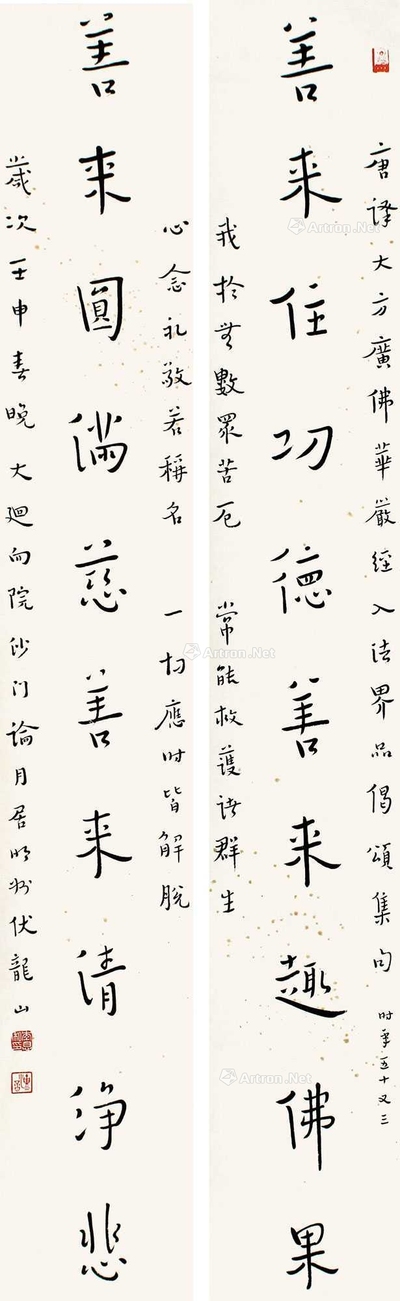 唐譯大方廣佛華嚴經入法界品偈頌集句 时年五十又三
善来住功德善来趣佛果
我於無數眾苦厄 常能救護諸群生
心念礼敬若稱名 一切應时皆解脫
善来圓滿慈善来清淨悲
歲次壬申春晚大迴向院沙门論月居明州伏龍山
Artron.Net
Artron.Net
Artron.Net
Artron.Net